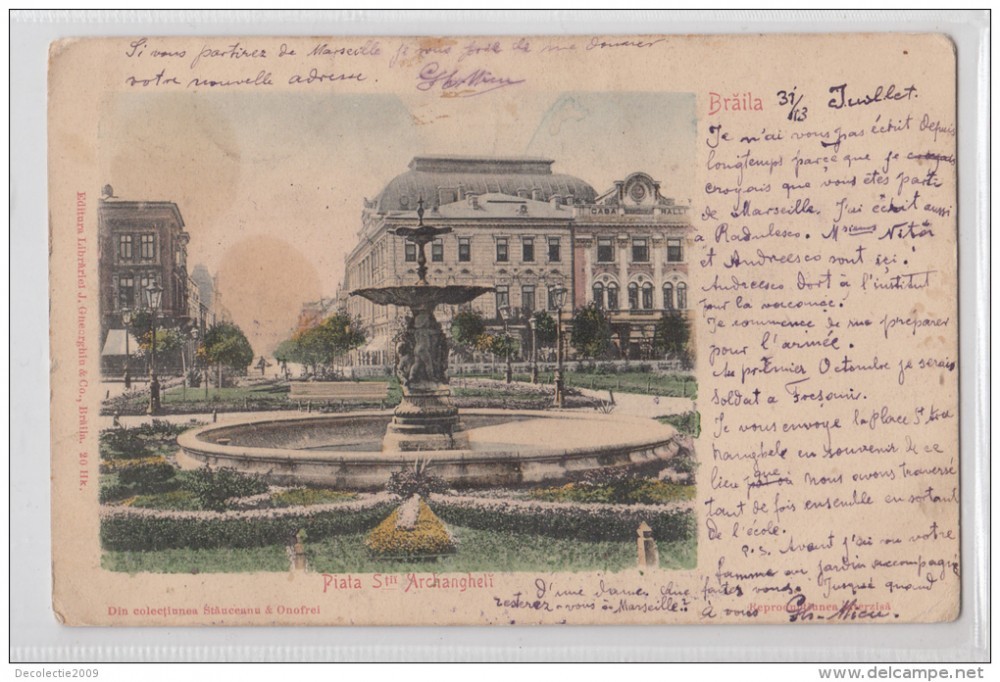 Si vous partirez de Marseille je vous prie de me donner
votre nouvelle adresse.
Brăila 31/13 Juillet.
Je n'ai vous pas écrit depuis
longtemps parce que je croyais
croyais que vous êtes parti
de Marseille. J'ai écrit aussi
à Radulesco. Mrsieurs
et Andreesco sont ici!
Andreesco dort à l'institut
pour la vacance.
Je commence de me préparer
pour l'armée.
Au premier Octombre je serais
soldat a Focsani.
Je vous envoye la Place St Ar
hanghele en souvenir de ce
lieu que nous avons traversé
tant de fois ensemble en sortant
de l'école.
P.S. Avant j'ai vu votre
femme au jardin accompagné
D'une dame. Que faites vous? Jusque quand
resterez-vous à Marseille?
à vous
Editura Librăriei J. Gheorghiu & Co., Brăila. 20 IIk.
CASA
Piata Stii Archanghelĭ
Din colecțiunea Stăuceanu & Onofrei
Reproducțiunea interzisă
Decolectie2009
www.delcampe.net